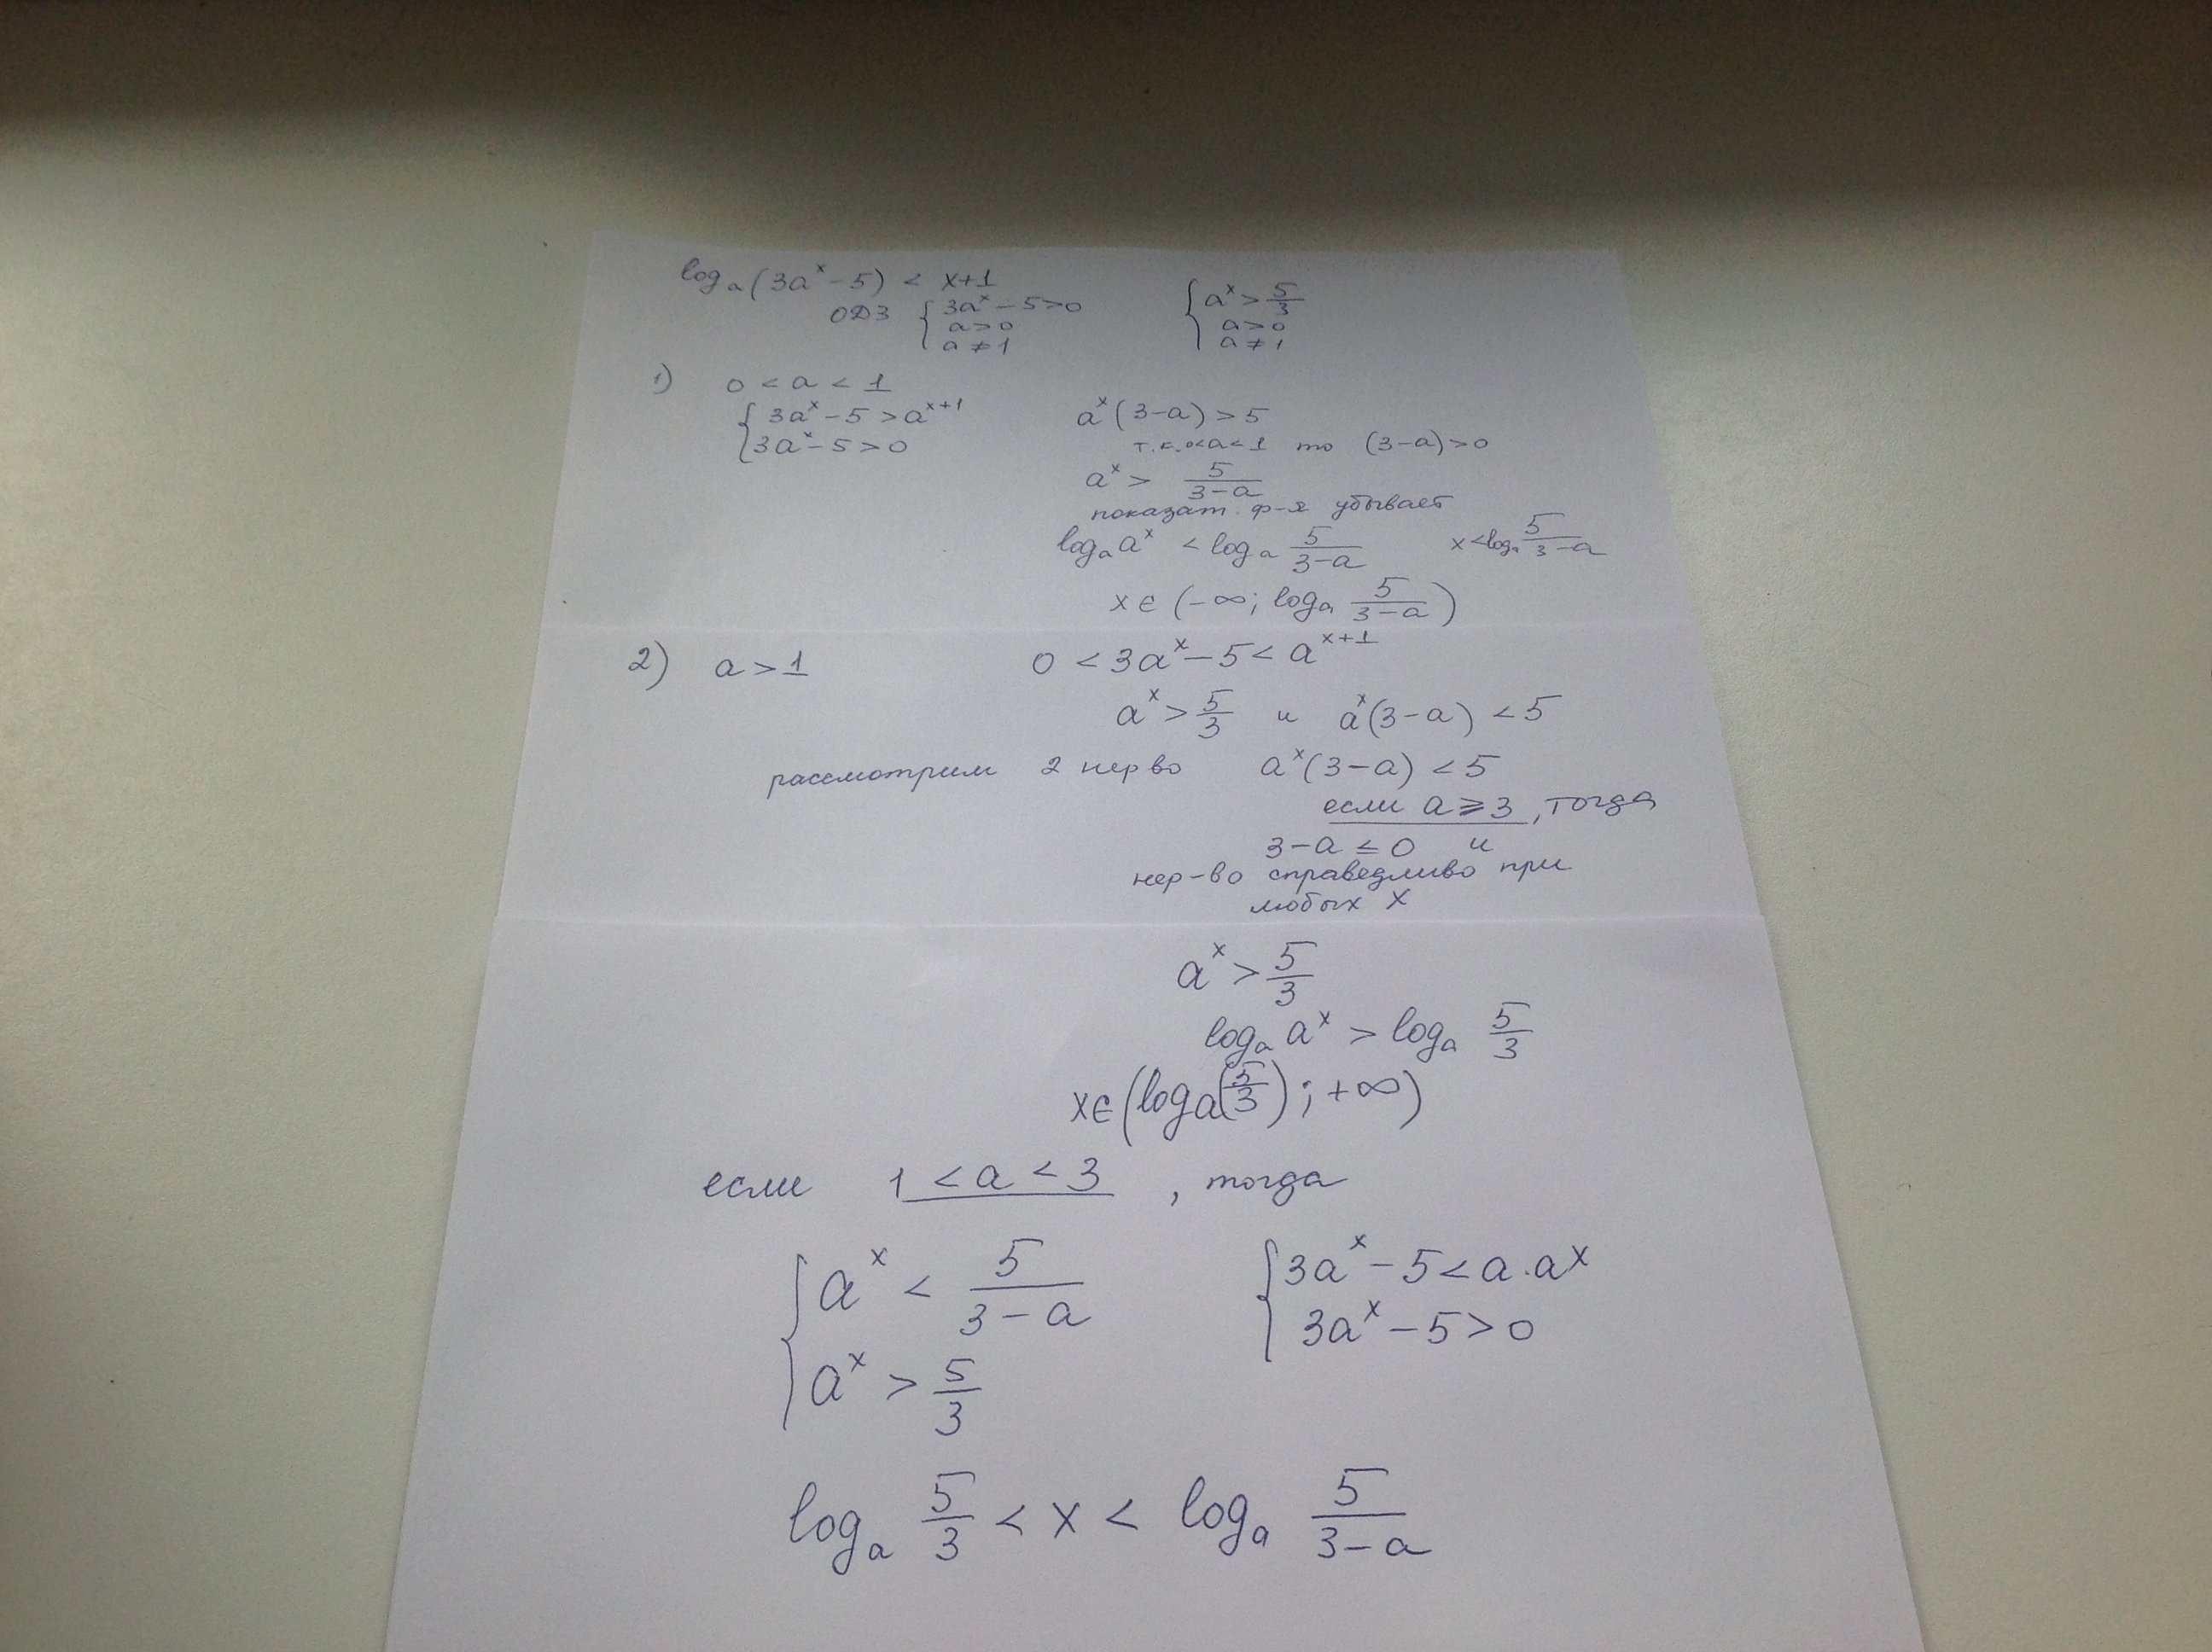 logₐ(3aˣ-5) < x+1
ОДЗ { 3aˣ-5>0 { aˣ > 5/3
a>0 a>0
a≠1 a≠1
1) 0 < a < 1
{ 3aˣ-5 > aˣ⁺¹ aˣ(3-a) > 5
{ 3aˣ-5>0 т.к. 0<a<1 то (3-a)>0
aˣ > 5/(3-a)
показат. ф-я убывает
logₐ aˣ < logₐ 5/(3-a) x < logₐ 5/(3-a)
x ∈ (-∞; logₐ 5/(3-a))
2) a > 1 0 < 3aˣ-5 < aˣ⁺¹
aˣ > 5/3 и aˣ(3-a) < 5
рассмотрим 2 нерво aˣ(3-a) < 5
если a ⩾ 3, тогда
3-a ≤ 0 и
нер-во справедливо при
любых x
aˣ > 5/3
logₐ aˣ > logₐ 5/3
x ∈ (logₐ(5/3); +∞)
если 1 < a < 3, тогда
{ aˣ < 5/(3-a) { 3aˣ-5 < a·aˣ
aˣ > 5/3 3aˣ-5>0
logₐ 5/3 < x < logₐ 5/(3-a)